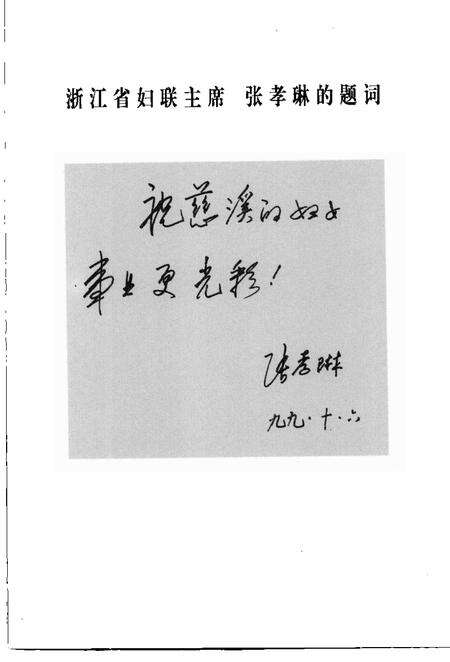 浙江省妇联主席 张孝琳的题词
祝慈溪的妇女
事业更光彩！
张孝琳
九九·十·六